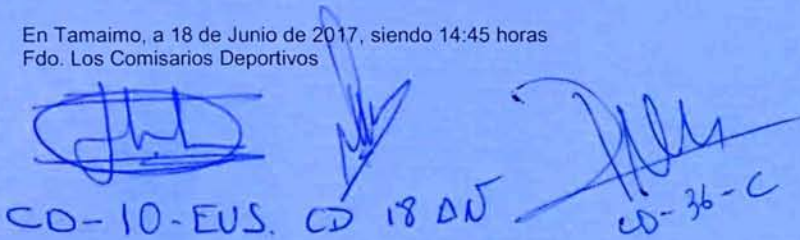 En Tamaimo, a 18 de Junio de 2017, siendo 14:45 horas
Fdo. Los Comisarios Deportivos
CD-10-EUS. CD 18 AN CD-36-C